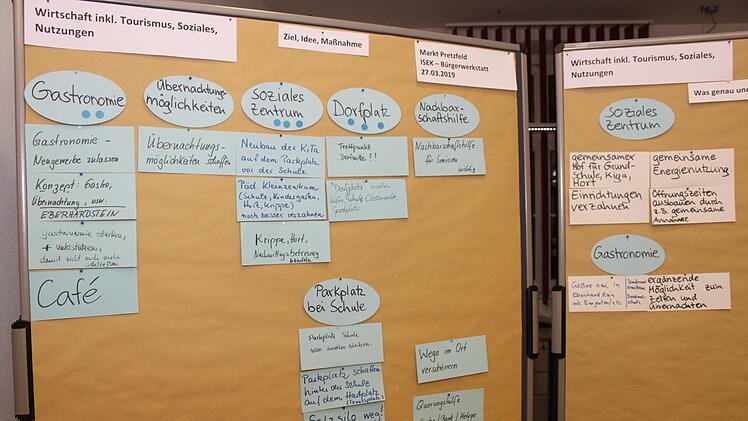 Wirtschaft inkl. Tourismus, Soziales,
Nutzungen
Ziel, Idee, Maßnahme
Markt Pretzfeld
ISEK – Bürgerwerkstatt
27.03.2019
Gastronomie
Gastronomie -
Neugewerbe zulassen
Konzept: Gastro,
Übernachtung, usw.
EBERHARDSTEIN
Gastronomie stärken,
+ unterstützen,
damit nicht mehr
schließen
Café
Übernachtungs-
möglichkeiten
Übernachtungs-
möglichkeiten schaffen
Soziales
Zentrum
Neubau des KiTa
auf dem Parkplatz
vor der Schule
Päd. Kleinzentrum
(Schule, Kindergarten,
Hort, Krippe)
noch besser verzahnen
Krippe, Hort,
Nachmittagsbetreuung
bündeln
Dorfplatz
Treffpunkt
Dorfmitte !!
Dorfplatz
Nachbar-
schaftshilfe
Nachbarschaftshilfe
für Senioren
Parkplatz
bei Schule
Parkplatz Schule
Parkplatz schaffen
hinter der Schule
auf dem Hartplatz
(Tennisplatz)
Salzsilo weg!
Wege im Ort
verschönern
Querungshilfe
Wirtschaft inkl. Tourismus, Soziales,
Nutzungen
Was genau
Soziales
Zentrum
gemeinsamer
Hof für Grund-
Schule, Kiga,
Hort
Einrichtungen
verzahnen
gemeinsame
Energienutzung
Öffnungszeiten
ausbauen durch
z.B. gemeinsame
Gastronomie
Gastro neu in
Eberhardstein
mit
ergänzende
Möglichkeit zum
Zelten und
übernachten